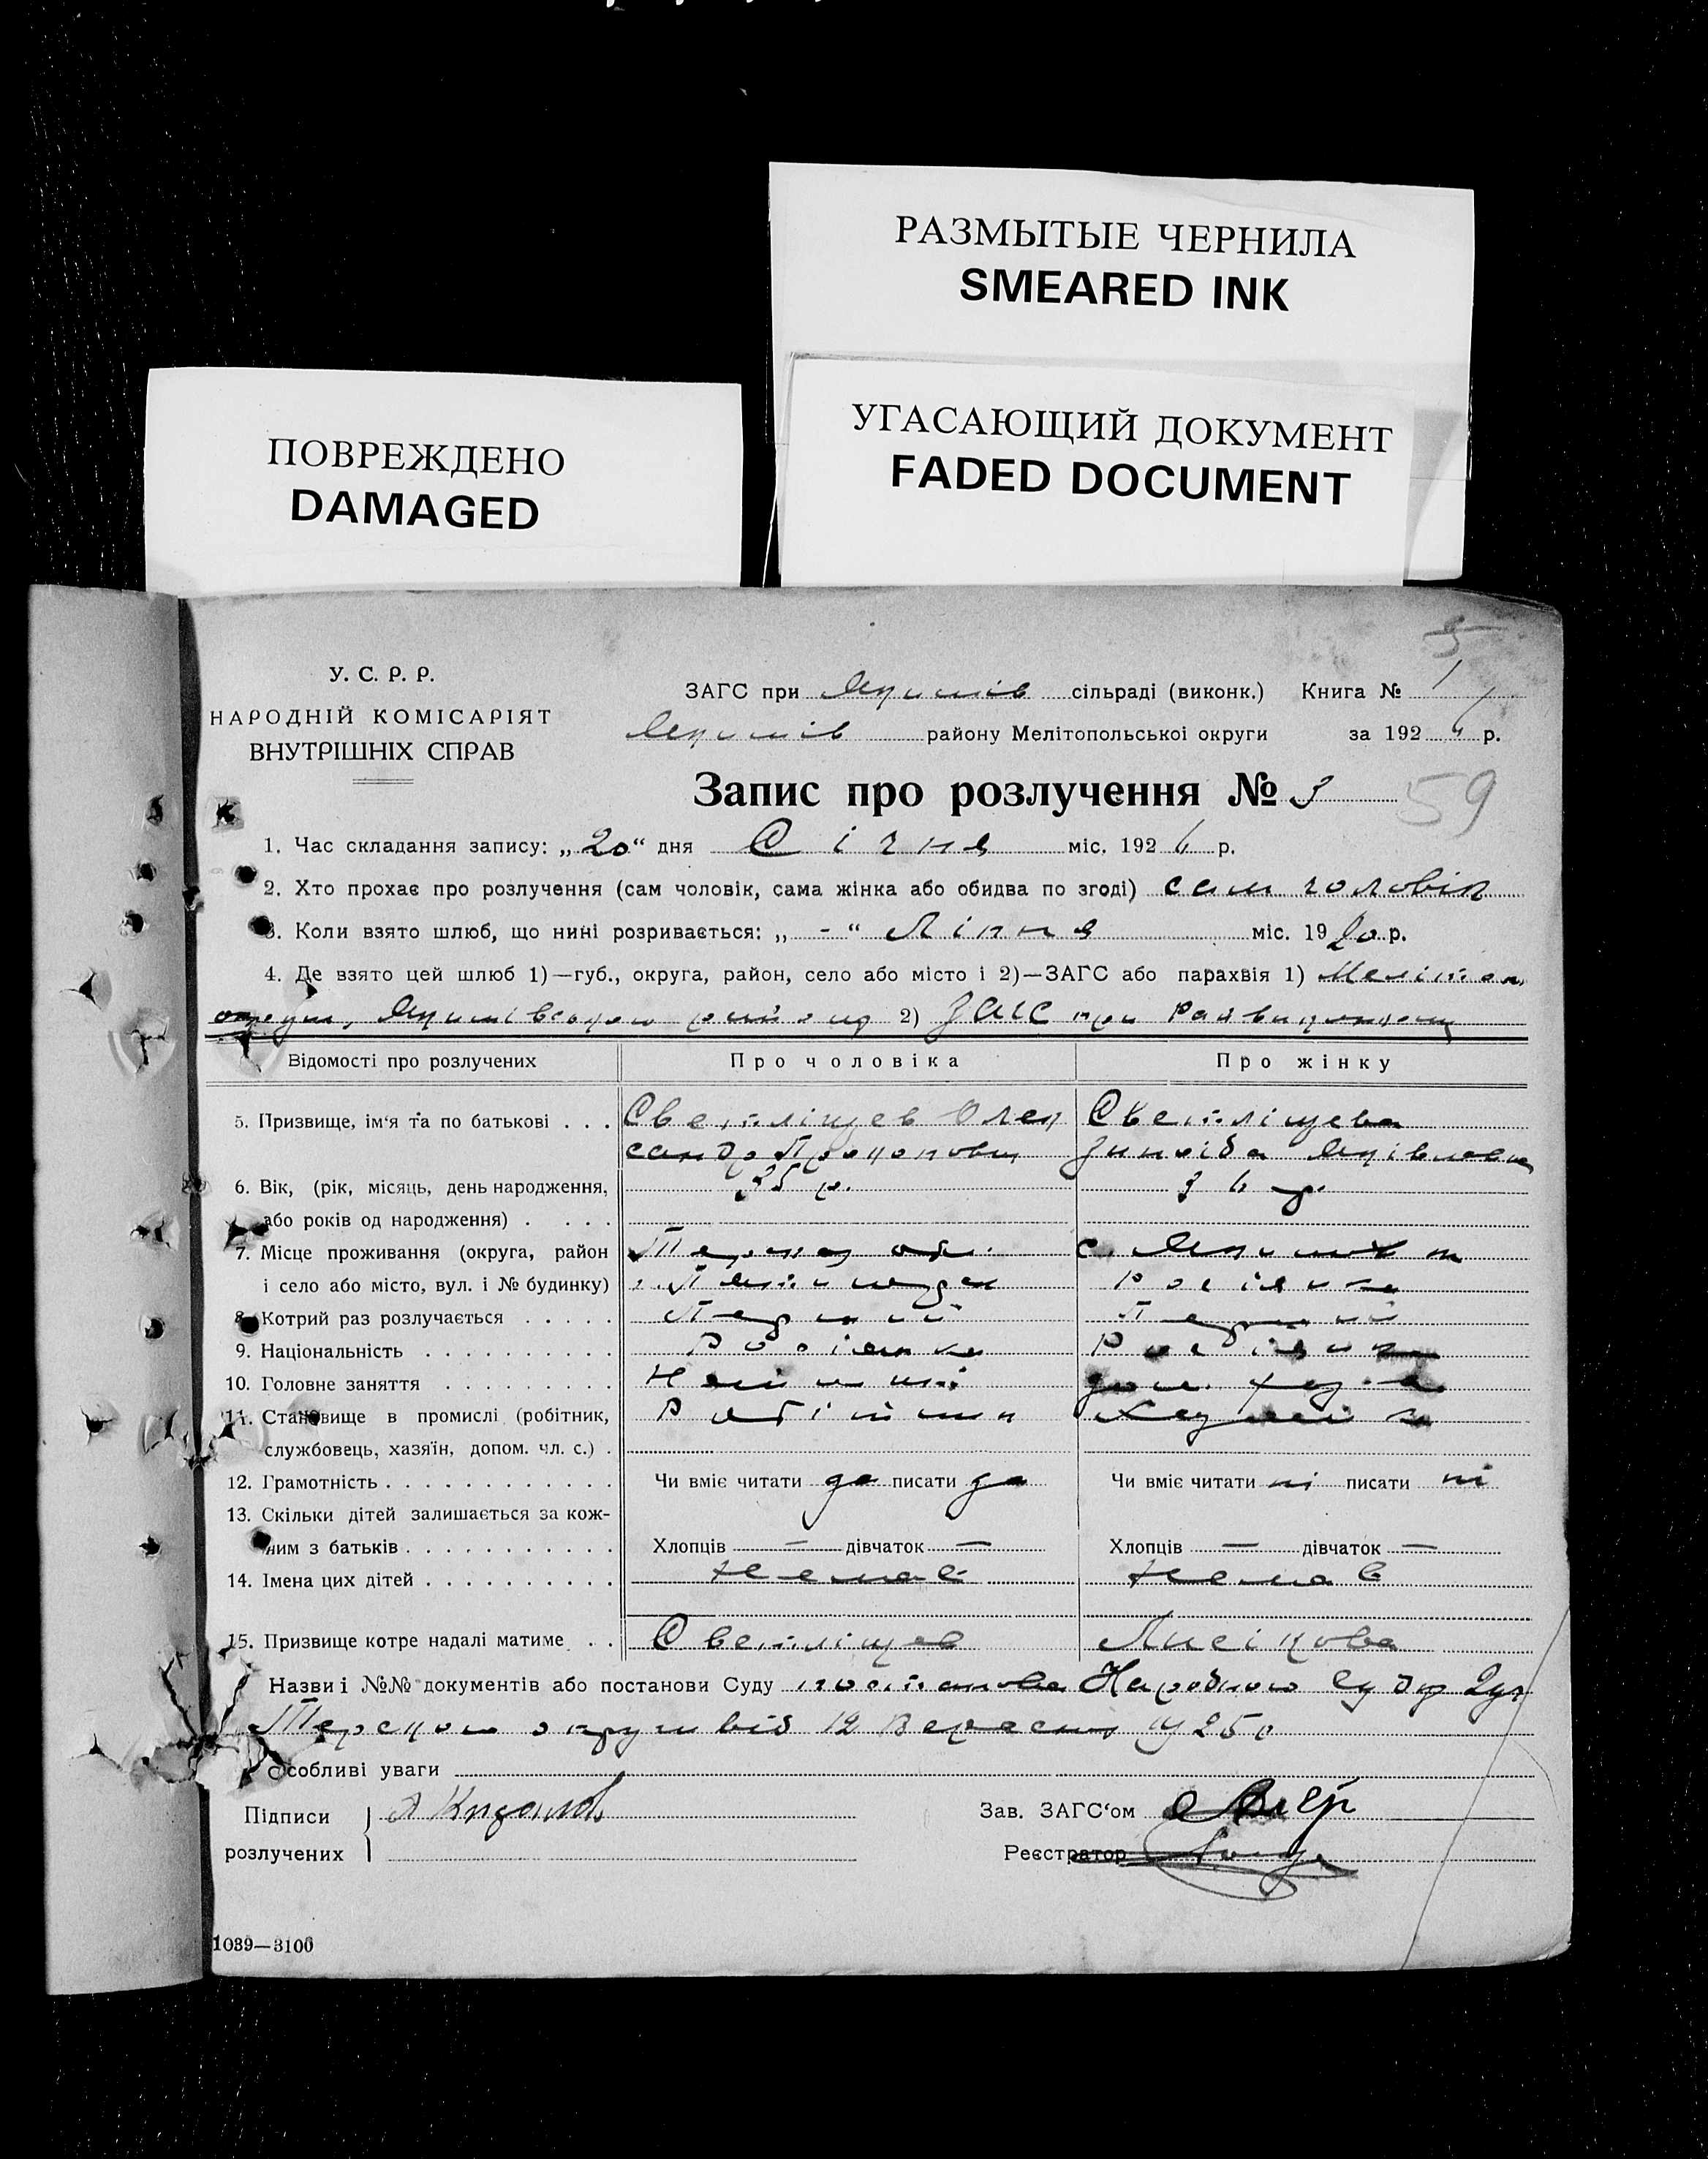 РАЗМЫТЫЕ ЧЕРНИЛА
SMEARED INK
УГАСАЮЩИЙ ДОКУМЕНТ
FADED DOCUMENT
ПОВРЕЖДЕНО
DAMAGED
5
У. С. Р. Р.
НАРОДНІЙ КОМІСАРІЯТ
ВНУТРІШНІХ СПРАВ
ЗАГС при Якимів сільраді (виконк.) Книга № 1
Якимів району Мелітопольської округи за 1926 р.
Запис про розлучення № 3 59
1. Час складання запису: „20“ дня Січня міс. 1926 р.
2. Хто прохає про розлучення (сам чоловік, сама жінка або обидва по згоді) сам чоловік
3. Коли взято шлюб, що нині розривається: „-“ Липня міс. 1920 р.
4. Де взято цей шлюб 1)—губ., округа, район, село або місто і 2)—ЗАГС або парахвія 1) Мелітоп.
округи, Якимівського району 2) ЗАГС при
Відомості про розлучених Про чоловіка Про жінку
5. Призвище, ім'я та по батькові . . . Светліщев Олек Светліщева
сандр Зинаіда Яківлевна
6. Вік, (рік, місяць, день народження, 35 р. 36 р.
або років од народження) . . . .
7. Місце проживання (округа, район Терськ. окр. с. Якимівка
і село або місто, вул. і № будинку)
8. Котрий раз розлучається . . . . . Перший Перший
9. Національність . . . . . . . . . .
10. Головне заняття . . . . . . . . .
11. Становище в промислі (робітник, Робітник
службовець, хазяїн, допом. чл. с.) .
12. Грамотність . . . . . . . . . . . . Чи вміє читати да писати да Чи вміє читати ні писати ні
13. Скільки дітей залишається за кож-
ним з батьків . . . . . . . . . . . Хлопців — дівчаток — Хлопців — дівчаток —
14. Імена цих дітей . . . . . . . . . . Немає Немає
15. Призвище котре надалі матиме . . Светліщев
Назви і №№ документів або постанови Суду постанова Народного Суду 2уч
Терського округи від 12 Вересня 1925 р
Особливі уваги
Підписи
розлучених
Зав. ЗАГС'ом
Реєстратор
1039—3100